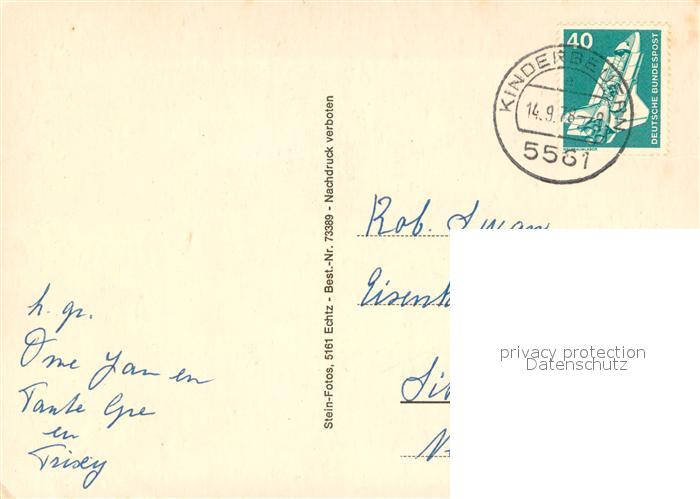 40
DEUTSCHE BUNDESPOST
KINDERBEUERN
14.9.78
5581
Stein-Fotos, 5161 Echtz - Best.-Nr. 73389 - Nachdruck verboten
Rob.
h. gr.
Ome Jan en
Tante
en
Trixy
privacy protection
Datenschutz